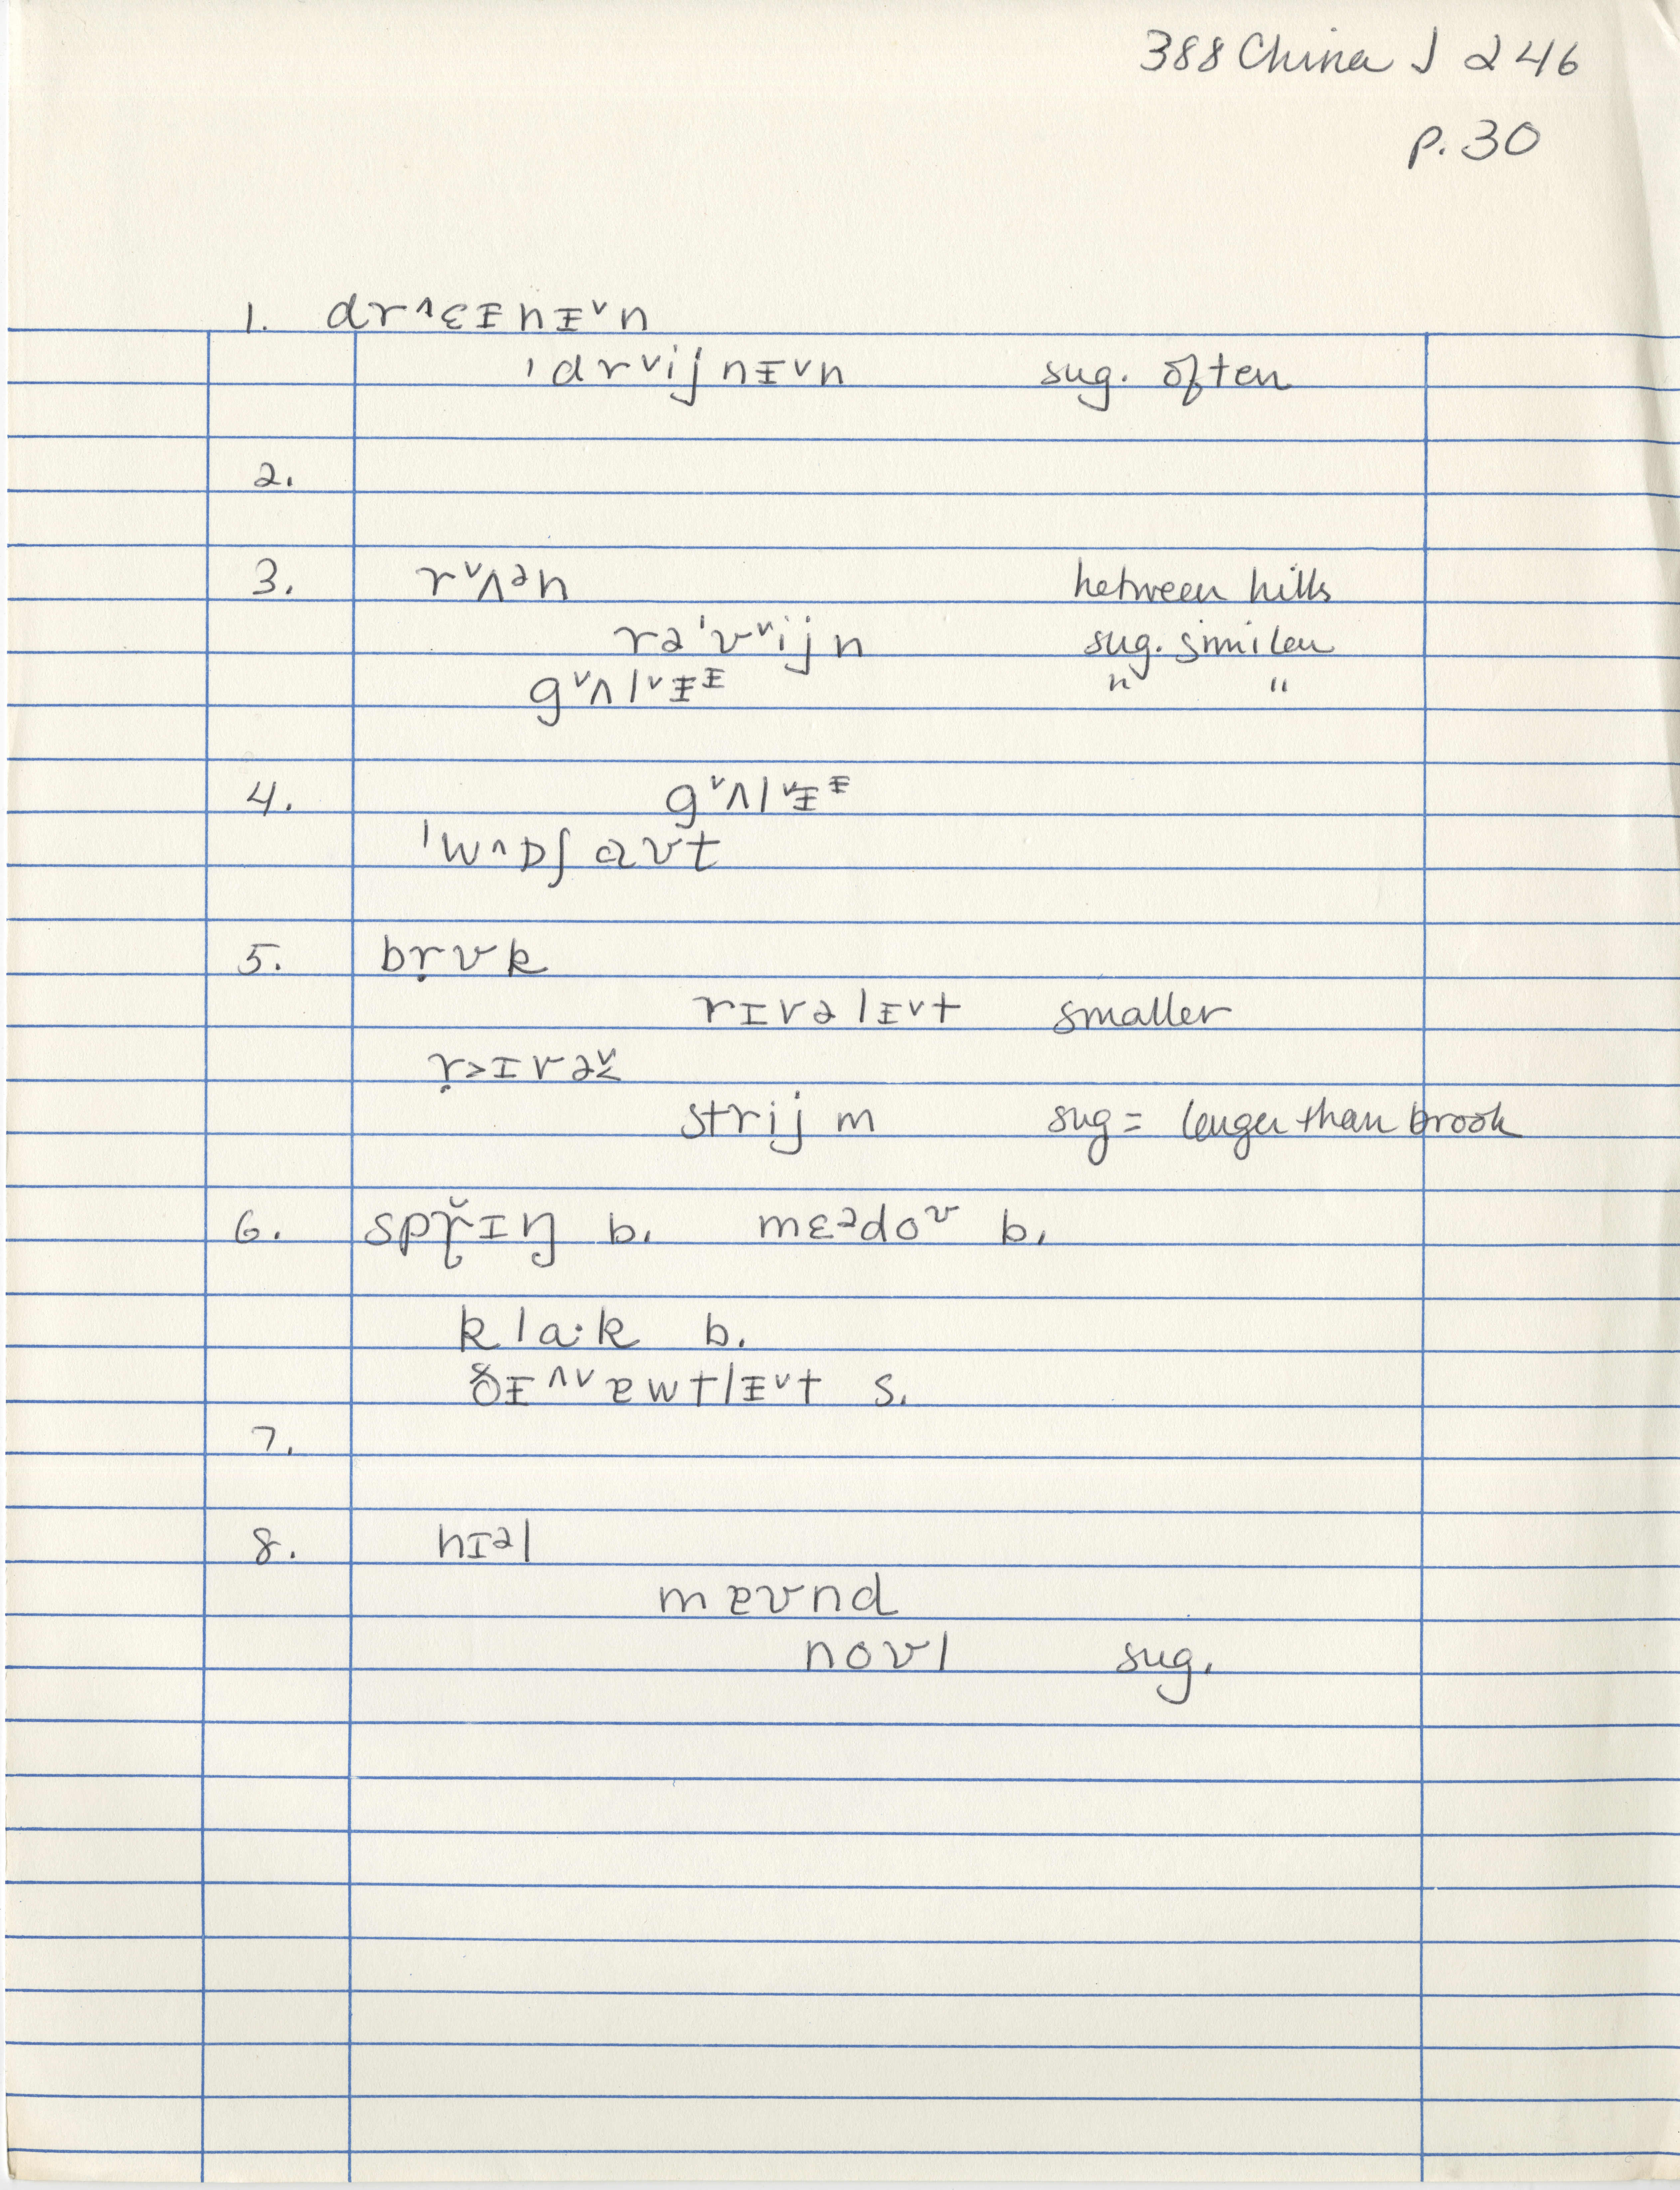 388 China J 246
p. 30
1. dr˄ɛᵻnᵻ˅n
ˈdr˅ijnᵻ˅n sug. often
2.
3. r˅ʌᵊn between hills
rəˈv˅ijn sug. similar
g˅ʌl˅ᵻᵻ " "
4. g˅ʌl˅ᵻᵻ
ˈw˄ɒʃaʊt
5. bṛʊk
rɪvəlᵻ˅t smaller
ṛ>ɪvə˅<
strijm sug = larger than brook
6. spɽ̌ɪŋ b. mɛᵊdoᶷ b.
kla·k b.
ðᵻ˄˅ɐwtlᵻ˅t s.
7.
8. hɪᵊl
mɐʊnd
noʊl sug.